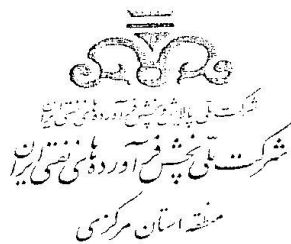 شرکت ملی پالایش و پخش فرآورده های نفتی ایران
شرکت ملّی پخش فرآورده های نفتی ایران
منطقه استان مرکزی